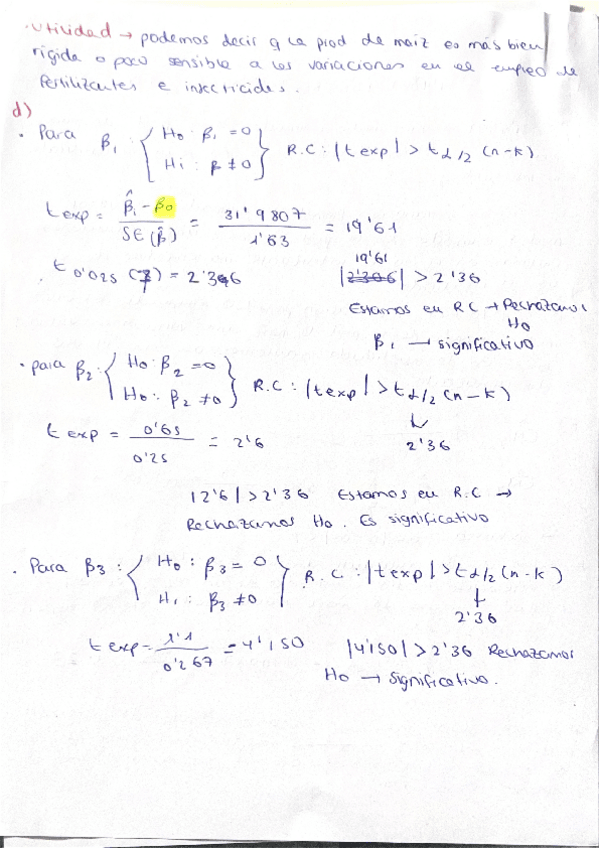 ·Utilidad → podemos decir q la prod de maiz es más bien
rígida o poco sensible a las variaciones en el empleo de
fertilizantes e insecticidas.
d)
· Para β₁ : { H₀ : β₁ = 0
H₁ : β ≠ 0 } R.C : |t exp| > t α/2 (n-k)
t exp = (β̂₁ - β₀) / SE(β̂) = 31'9807 / 1'63 = 19'61
t 0'025 (7) = 2'36 |19'61| > 2'36
Estamos en RC → Rechazamos
H₀
β₁ → significativo
· para β₂ : { H₀ : β₂ = 0
H₀ : β₂ ≠ 0 } R.C : |t exp| > t α/2 (n-k)
↓
2'36
t exp = 0'65 / 0'25 = 2'6
|2'6| > 2'36 Estamos en R.C →
Rechazamos H₀. Es significativo
· Para β₃ : { H₀ : β₃ = 0
H₁ : β₃ ≠ 0 } R.C : |t exp| > t α/2 (n-k)
↓
2'36
t exp = 1'1 / 0'267 = 4'150 |4'150| > 2'36 Rechazamos
H₀ → significativo.